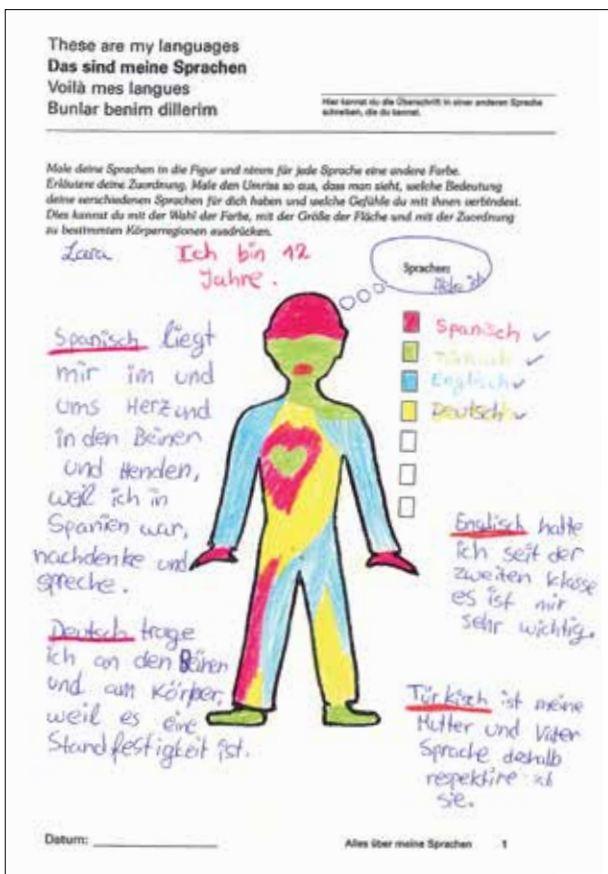 These are my languages
Das sind meine Sprachen
Voilà mes langues
Bunlar benim dillerim
Hier kannst du die Überschrift in einer anderen Sprache
schreiben, die du kannst.
Male deine Sprachen in die Figur und nimm für jede Sprache eine andere Farbe.
Erläutere deine Zuordnung. Male den Umriss so aus, dass man sieht, welche Bedeutung
deine verschiedenen Sprachen für dich haben und welche Gefühle du mit ihnen verbindest.
Dies kannst du mit der Wahl der Farbe, mit der Größe der Fläche und mit der Zuordnung
zu bestimmten Körperregionen ausdrücken.
Lara
Ich bin 12
Jahre.
Sprachen:
Spanisch
Türkisch
Englisch
Deutsch
Spanisch liegt
mir im und
ums Herz und
in den Beinen
und Henden,
weil ich in
Spanien war,
nachdenke und
spreche.
Deutsch trage
ich an den Beinen
und am Körper,
weil es eine
Standfestigkeit ist.
Englisch hatte
ich seit der
zweiten klasse
es ist mir
sehr wichtig.
Türkisch ist meine
Mutter und Vater
Sprache deshalb
respektire ich
sie.
Datum:
Alles über meine Sprachen 1